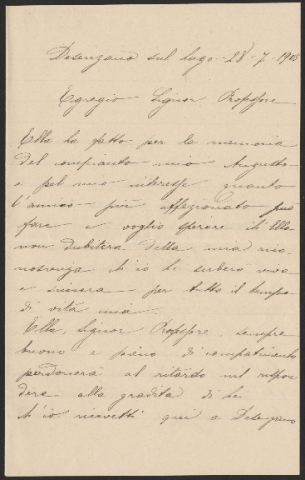 Desenzano sul Lago - 28 - 7 - 1908
Egregio Signor Professore
Ella ha fatto per la memoria
del compianto mio Augusto
e pel mio interesse quanto
l'amico più affezionato può
fare e voglio sperare ch'Ella
non dubiterà della mia rico-
noscenza ch'io le serberò viva
e sincera per tutto il tempo
di vita mia.
Ella, Signor Professore sempre
buono e pieno di compatimento
perdonerà al ritardo nel rispon
dere alla gradita di Lei
ch'io ricevetti qui a Desenzano